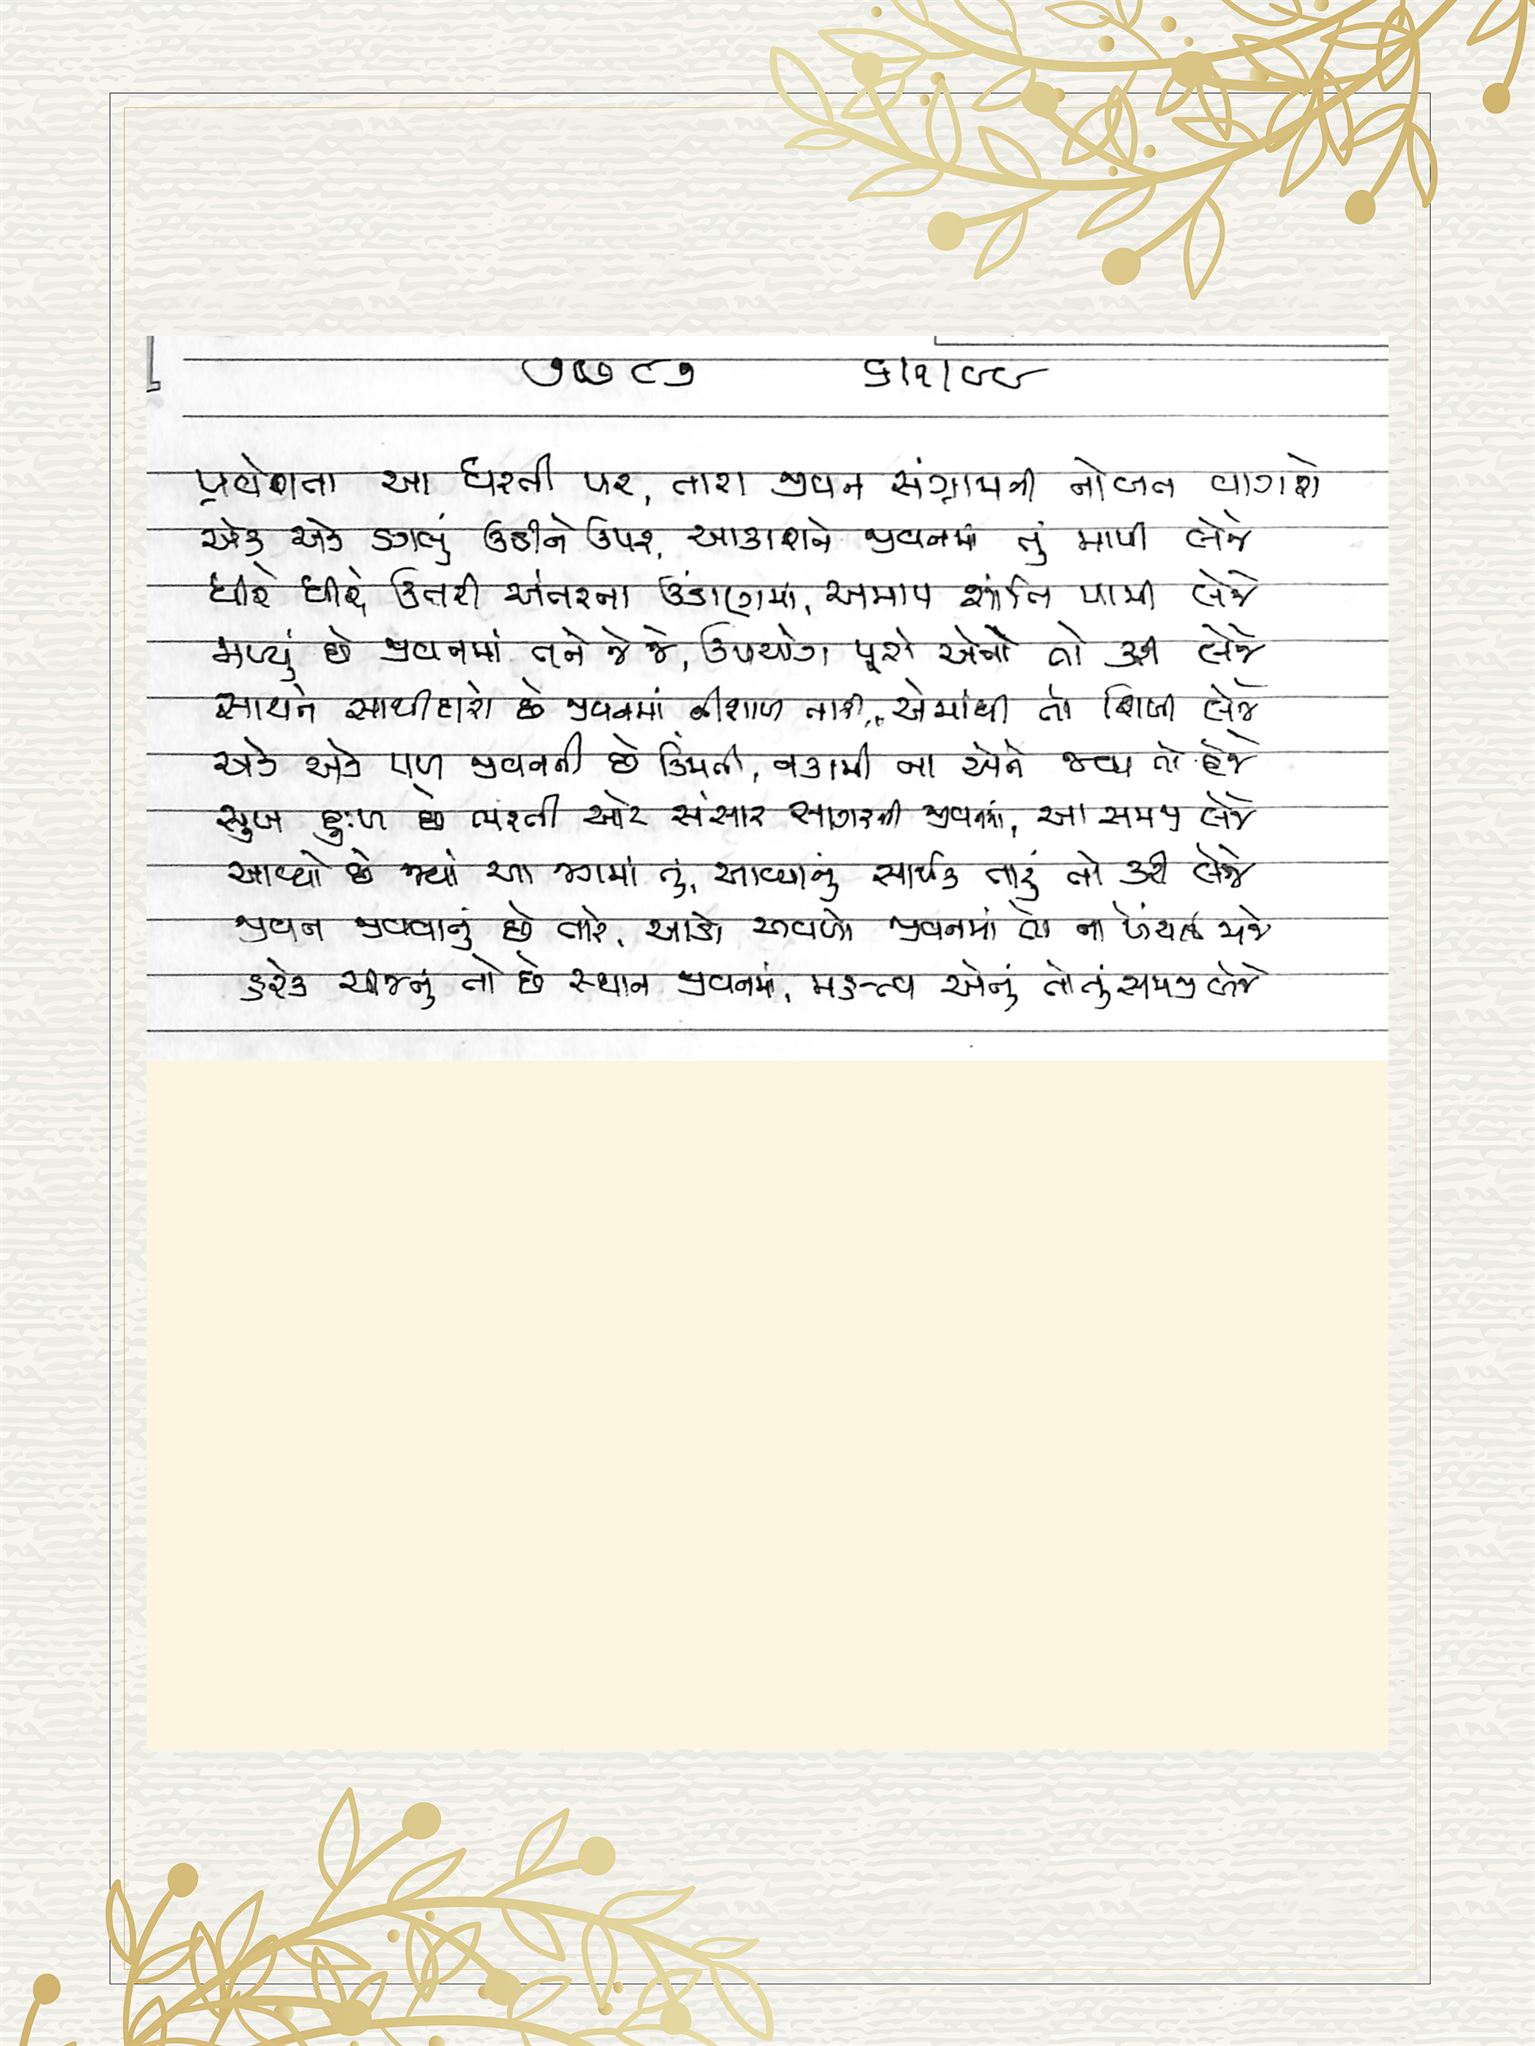 ૭૭૯૭ ૬/૨/૯૯
પ્રવેશતા આ ધરતી પર, તારા જીવન સંગ્રામની નોબત વાગશે
એક એક ડગલું ઉઠીને ઉપર, આકાશને જીવનમાં તું માપી લેજે
ધીરે ધીરે ઉતરી અંતરના ઉંડાણમાં, અમાપ શાંતિ પામી લેજે
મળ્યું છે જીવનમાં તને જે જે, ઉપયોગ પૂરો એનો તો કરી લેજે
સાથને સાથીદારો છે જીવનમાં નીશાળ તારી, એમાંથી તો શિખી લેજે
એક એક પળ જીવનની છે કિંમતી, નકામી ના એને જવા તો દેજે
સુખ દુઃખ છે ભરતી ઓટ સંસાર સાગરની જીવનમાં, આ સમજી લેજે
આવ્યો છે જ્યાં આ જગમાં તું, આવ્યાનું સાર્થક તારું તો કરી લેજે
જીવન જીવવાનું છે તારે, આડો અવળો જીવનમાં તો ના ખેંચાઈ જજે
દરેક ચીજનું તો છે સ્થાન જીવનમાં, મહત્ત્વ એનું તો તું સમજી લેજે